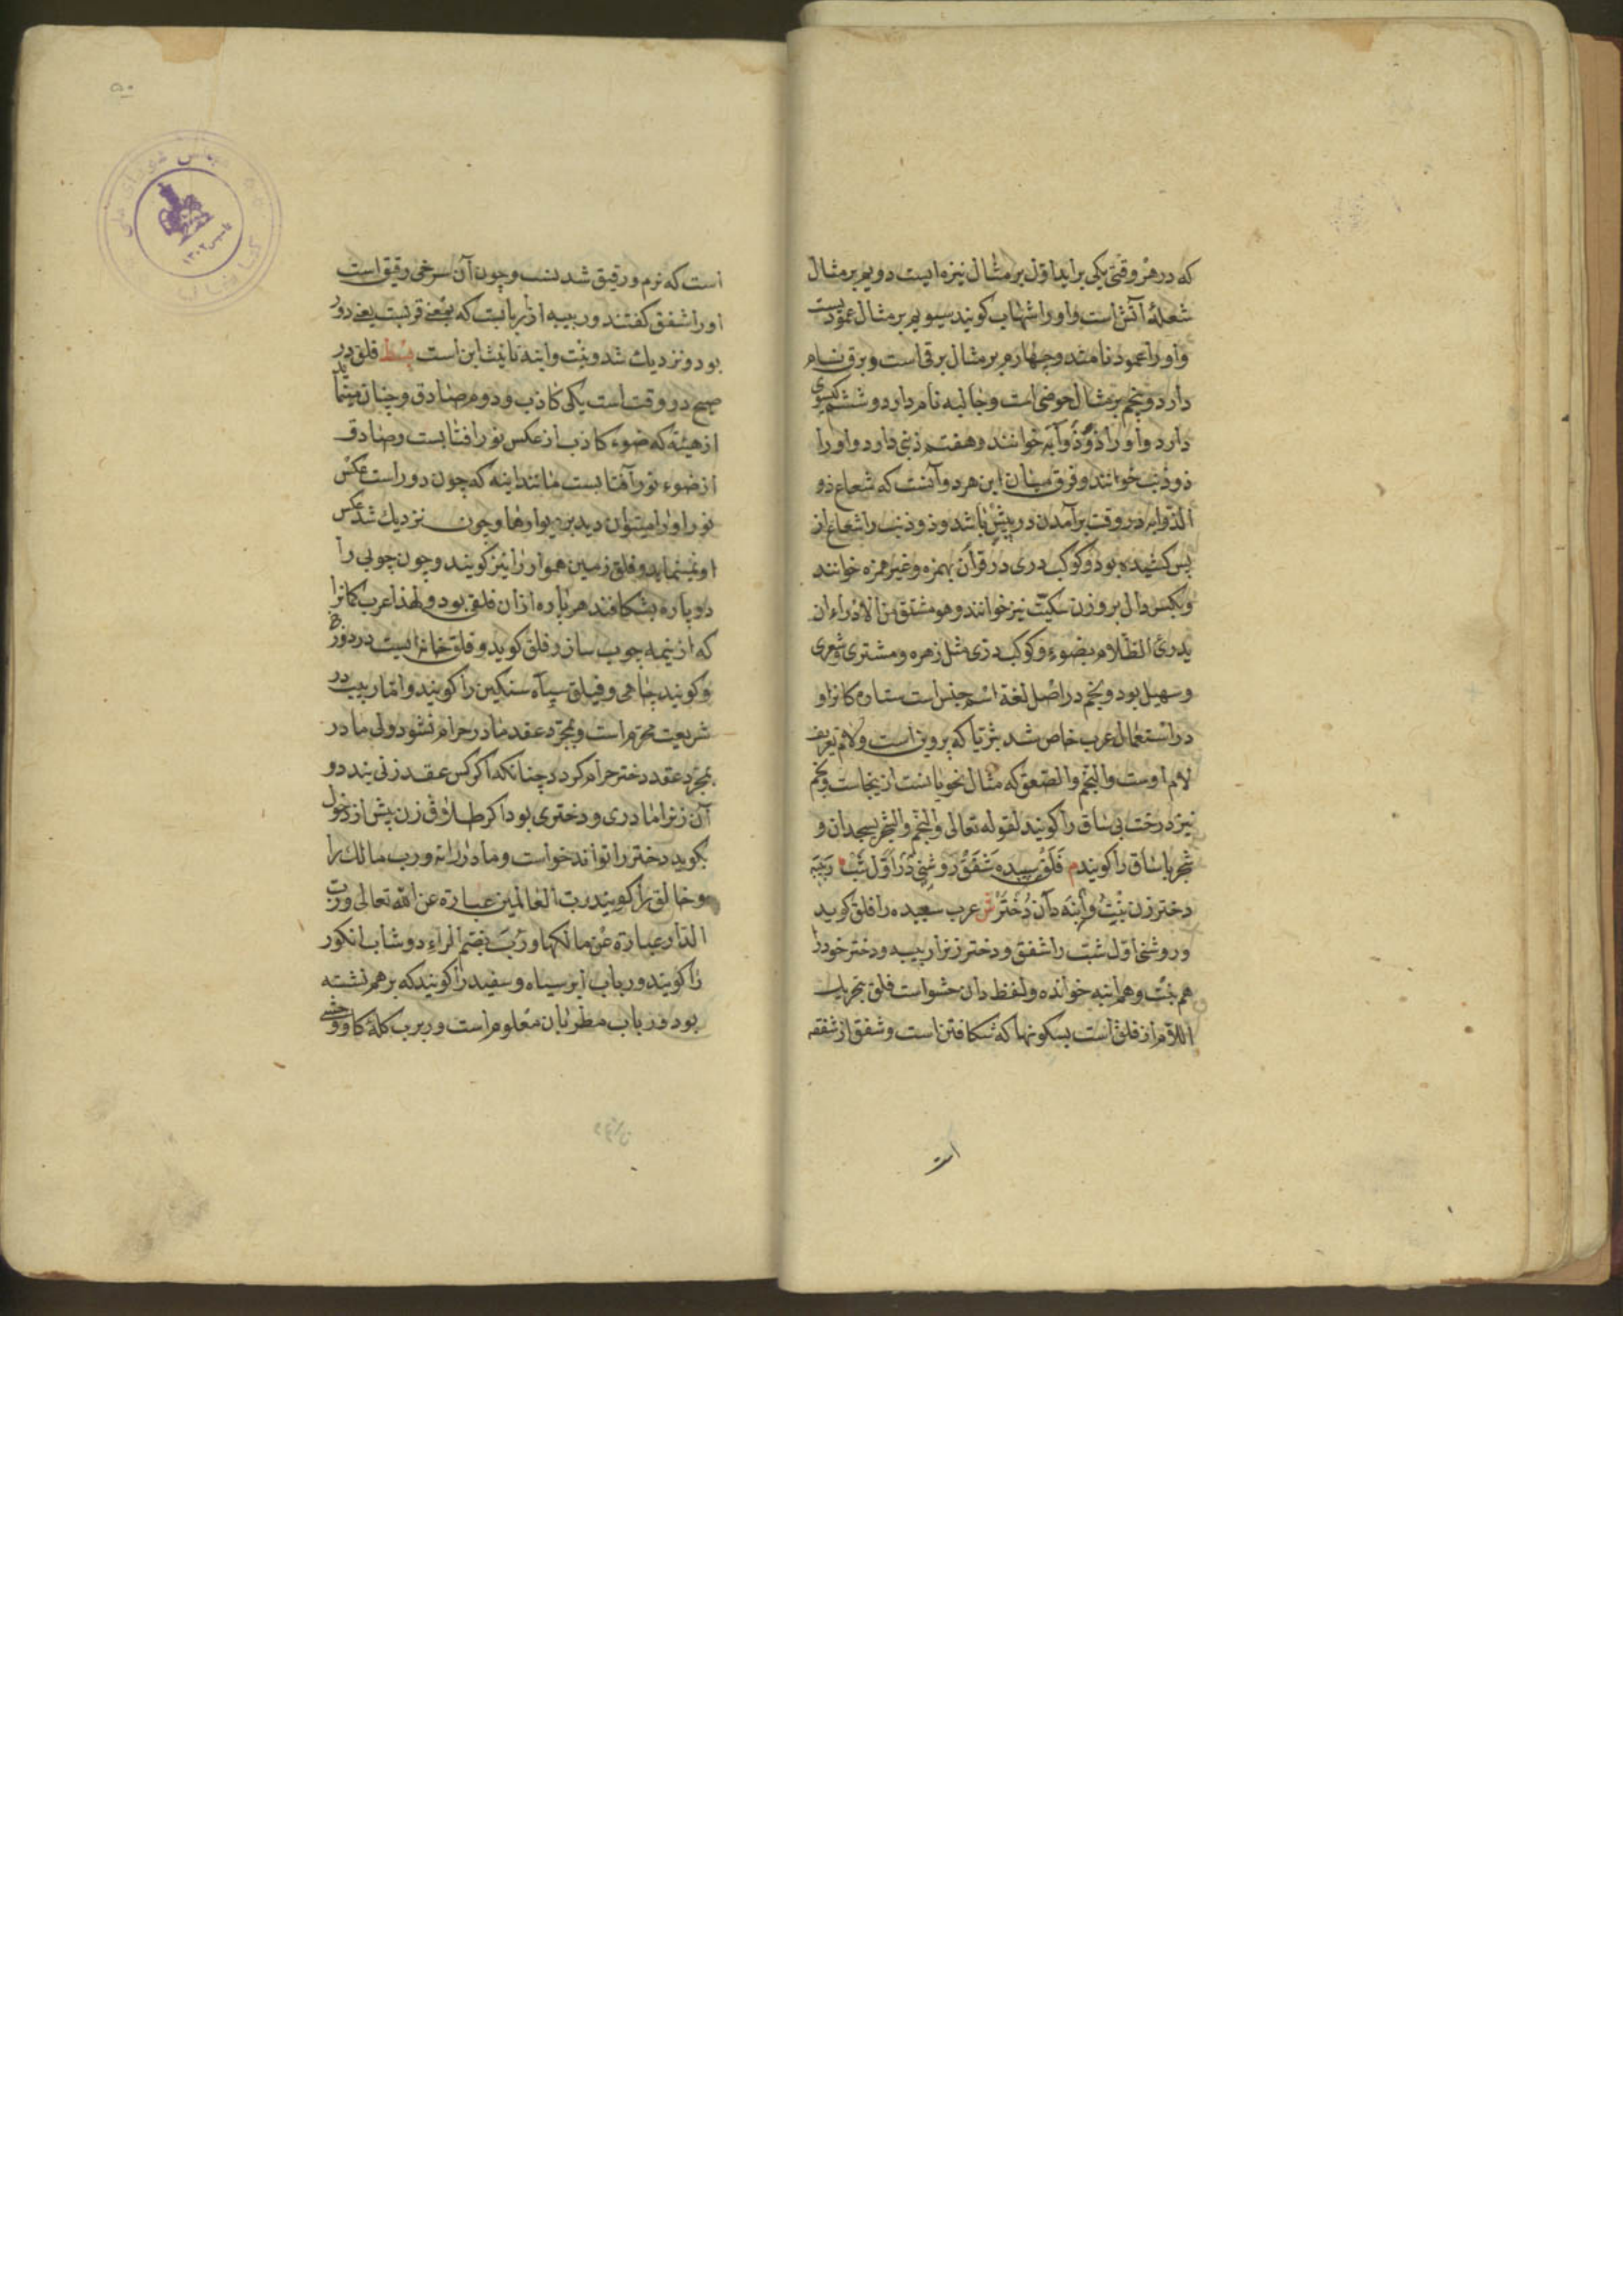 که در هر وقتی یکی براید اول بر مثال نیزه ایست دویم بر مثال
شعلۀ آتش است و او را شهاب کویند سیویم بر مثال عمودیست
و او را عمود نامند و چهارم بر مثال برقی است و برق نام
دارد و پنجم بر مثال حوضی است و جالبه نام دارد و ششم کیسوی
دارد و او را ذو ذوآبه خوانند و هفتم ذنبی دارد و او را
ذو ذنب خوانند و فرق میان این هر دو آنست که شعاع ذو
الذوابه در وقت برآمدن در پیش باشد و ذو ذنب را شعاع از
پس کشیده بود و کوکب دری در قرآن بهمزه و غیر همزه خوانند
و بکسر دال بر وزن سکیت نیز خوانند و هو مشتق من الادراء ان
یدرئ الظلام بضوء و کوکب دری مثل زهره و مشتری و شعری
و سهیل بود و نجم در اصل لغة اسم جنس است ستاره کانرا و
در استعمال عرب خاص شد بثریا که پروین است و لام تعریف
لام اوست و النجم و الصعق که مثال نحویانست ازینجاست و نجم
نیز درخت بی ساق را کویند لقوله تعالی والنجم والشجر یسجدان و
شجر با ساق را کویند م فَلَق سپیده شَفَق روشنی در اول شب ربیبه
دختر زن بنت و ابنه دان دختر ش عرب سپیده را فلق کوید
و روشنی اول شب را شفق و دختر زنرا ربیبه و دختر خود را
هم بنت و هم ابنه خوانده و لفظ دان حشو است فلق بتحریک
اللام از فلق است بسکونها که شکافتن است و شفق از شفقه
است
۵۰
است که نرم و رقیق شدنست و چون آن سرخی رقیق است
او را شفق کفتند و ربیبه از ربابت که بمعنی قربت یعنی دور
بود و نزدیک شد و بنت و ابنة تانیث ابن است بسط فلق در
صبح دو وقت است یکی کاذب و دوم صادق و چنان مینماید
از هیئة که ضوء کاذب از عکس نور افتابست و صادق
از ضوء نور آفتابست مانند اینه که چون دور است عکس
نور او را میتوان دید بر دیوارها و چون نزدیک شد عکس
او نمینماید و فلق زمین هموار را نیز کویند و چون چوبی را
دو پاره بشکافند هر پاره از ان فلق بود و لهذا عرب کمانرا
که از نیمه چوب سازد فلق کوید و فلق خانه ایست در دوزخ
و کویند چاهی و فیلق سپاه سنکین را کویند و اما ربیبه در
شریعت محرم است و بمجرد عقد مادر حرام نشود ولی مادر
بمجرد عقد دختر حرام کردد چنانکه اکر کس عقد زنی بندد و
آن زنرا مادری و دختری بود اکر طلاق زن پیش از دخول
بکوید دختر را تواند خواست و مادر را نه و رب مالک را
و خالق را کویند رب العالمین عبارة عن الله تعالی و رب
الدار عبارة عن مالکها و رُبّ بضم الراء دوشاب انکور
را کویند و رباب ابر سیاه و سفید را کویند که بر هم نشسته
بود و رباب مطربان معلوم است و ربرب کلۀ کاو وحشی